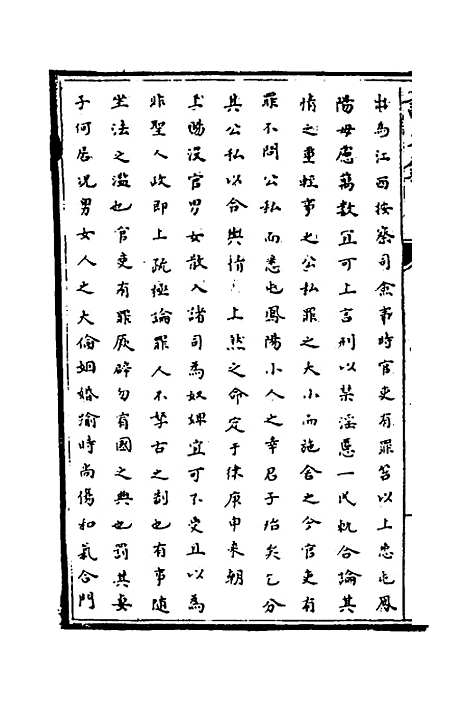 擢為江西按察司僉事時官吏有罪笞以上悉屯鳳
陽毋慮萬數宜可上言刑以禁淫慝一民軌合論其
情之重輕事之公私罪之大小而施舍之今官吏有
罪不問公私而悉屯鳳陽小人之幸君子殆矣乞分
其公私以合輿情上然之命定于律庚申來朝
上賜沒官男女散入諸司為奴婢宜可不受且以為
非聖人政即上疏極論罪人不孥古之制也有事隨
坐法之濫也官吏有罪厥辟勿有國之典也罰其妻
子何居況男女人之大倫姻婚渝時尚傷和氣合門